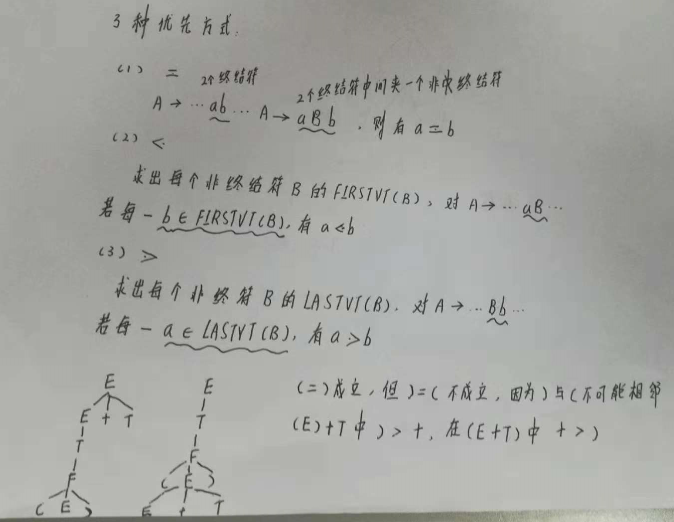 3种优先方式.
(1) = 2个终结符 2个终结符中间夹一个非终结符
A → … ab … A → aBb , 则有 a = b
(2) <
求出每个非终结符 B 的 FIRSTVT(B), 对 A → … aB …
若每一 b ∈ FIRSTVT(B), 有 a < b
(3) >
求出每个非终符 B 的 LASTVT(B). 对 A → … Bb …
若每一 a ∈ LASTVT(B), 有 a > b
(=) 成立, 但 ) = ( 不成立, 因为 ) 与 ( 不可能相邻
(E)+T 中 ) > +, 在(E+T) 中 + > )
E
E + T
T
F
( E )
E
T
F
( E )
E + T